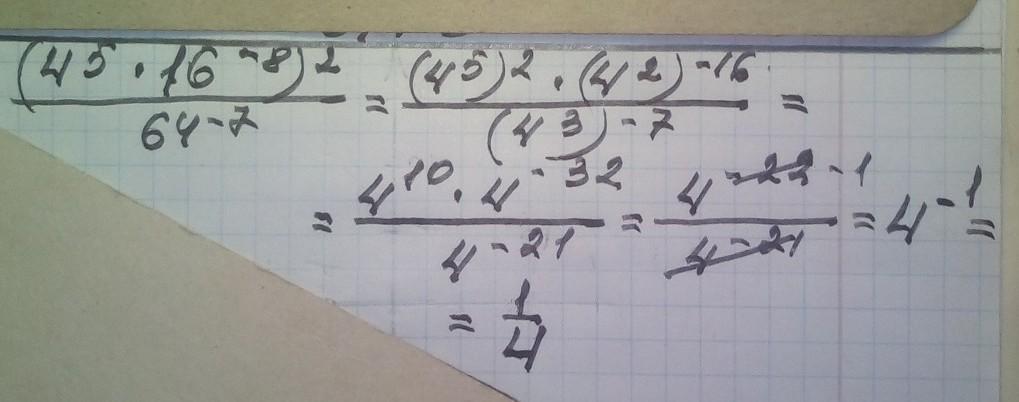 (4^5 · 16^-8)^2 / 64^-7 = (4^5)^2 · (4^2)^-16 / (4^3)^-7 =
= 4^10 · 4^-32 / 4^-21 = 4^-22 -1 / 4^-21 = 4^-1 =
= 1/4